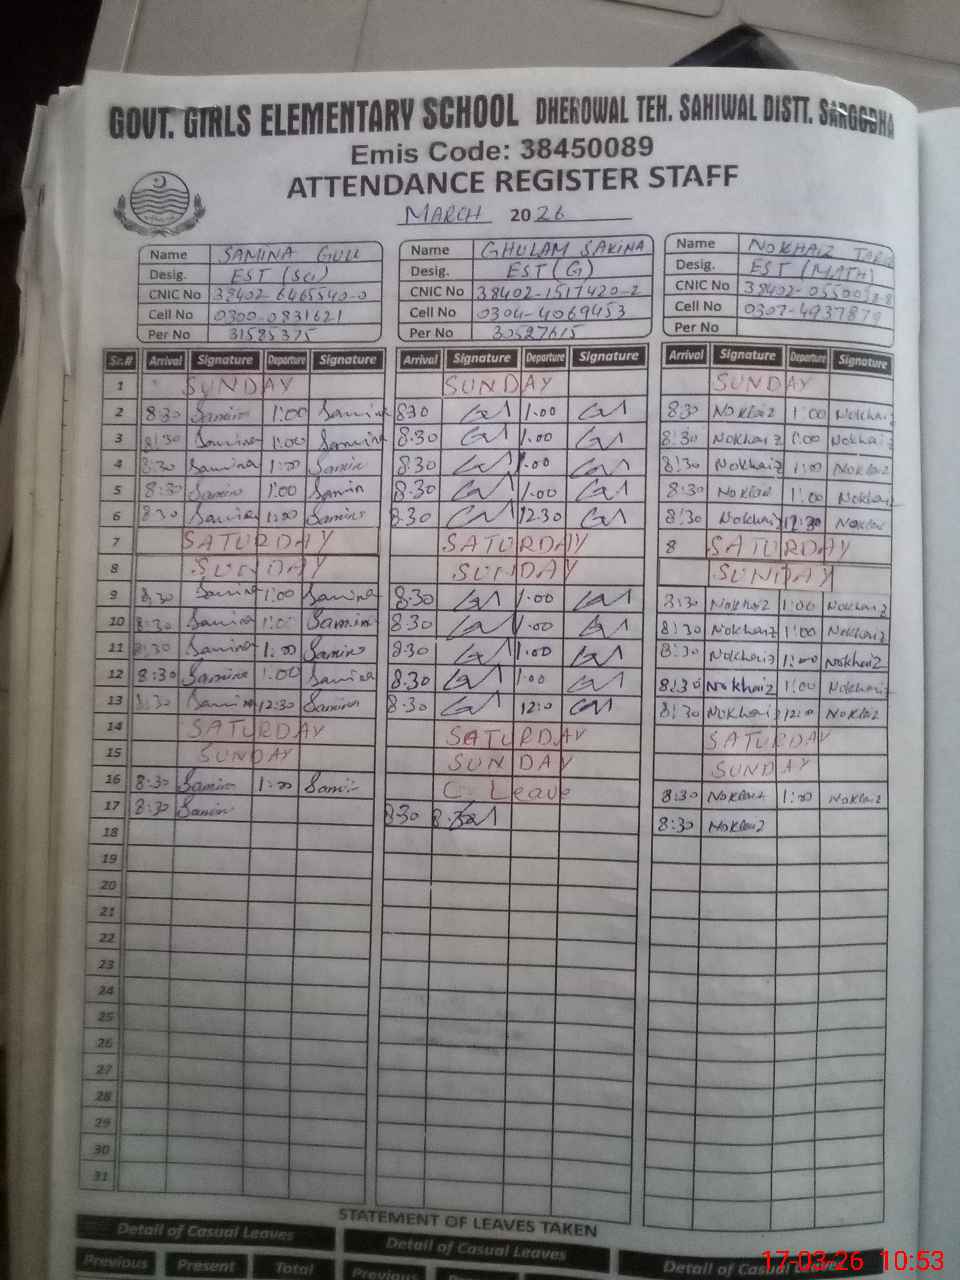 GOVT. GIRLS ELEMENTARY SCHOOL DHEROWAL TEH. SAHIWAL DISTT. SARGODHA
Emis Code: 38450089
ATTENDANCE REGISTER STAFF
MARCH 2026
Name SAMINA GULL Name GHULAM SAKINA Name NOKHAIZ
Desig. EST (Sci) Desig. EST (G) Desig. EST (MATH)
CNIC No 38402-6465540-0 CNIC No 38402-1517420-2 CNIC No
Cell No 0300-0831621 Cell No 0304-4069453 Cell No 0307-4937879
Per No 31585375 Per No 30527615 Per No
Sr.# Arrival Signature Departure Signature Arrival Signature Departure Signature Arrival Signature Departure Signature
1 SUNDAY SUNDAY SUNDAY
2 8:30 Samina 1:00 Samina 8:30 1:00 8:30 Nokhaiz 1:00 Nokhaiz
3 8:30 Samina 1:00 Samina 8:30 1:00 8:30 Nokhaiz 1:00 Nokhaiz
4 8:30 Samina 1:00 Samin 8:30 1:00 8:30 Nokhaiz 1:00 Nokhaiz
5 8:30 Samin 1:00 Samin 8:30 1:00 8:30 Nokhaiz 1:00 Nokhaiz
6 8:30 Samina 1:00 Samina 8:30 12:30 8:30 Nokhaiz 12:30 Nokhaiz
7 SATURDAY SATURDAY 8 SATURDAY
8 SUNDAY SUNDAY SUNDAY
9 8:30 Samina 1:00 Samina 8:30 1:00 8:30 Nokhaiz 1:00 Nokhaiz
10 8:30 Samina 1:00 Samina 8:30 1:00 8:30 Nokhaiz 1:00 Nokhaiz
11 8:30 Samina 1:00 Samina 8:30 1:00 8:30 Nokhaiz 1:00 Nokhaiz
12 8:30 Samina 1:00 Samina 8:30 1:00 8:30 Nokhaiz 1:00 Nokhaiz
13 8:30 Samina 12:30 Samina 8:30 8:30 Nokhaiz Nokhaiz
14 SATURDAY SATURDAY SATURDAY
15 SUNDAY SUNDAY SUNDAY
16 8:30 Samin 1:00 Samin C-Leave 8:30 Nokhaiz 1:00 Nokhaiz
17 8:30 Samin 8:30 8:30 Nokhaiz
18
19
20
21
22
23
24
25
26
27
28
29
30
31
STATEMENT OF LEAVES TAKEN
Detail of Casual Leaves Detail of Casual Leaves Detail of Casual Leaves
Previous Present Total Previous
17-03-26 10:53